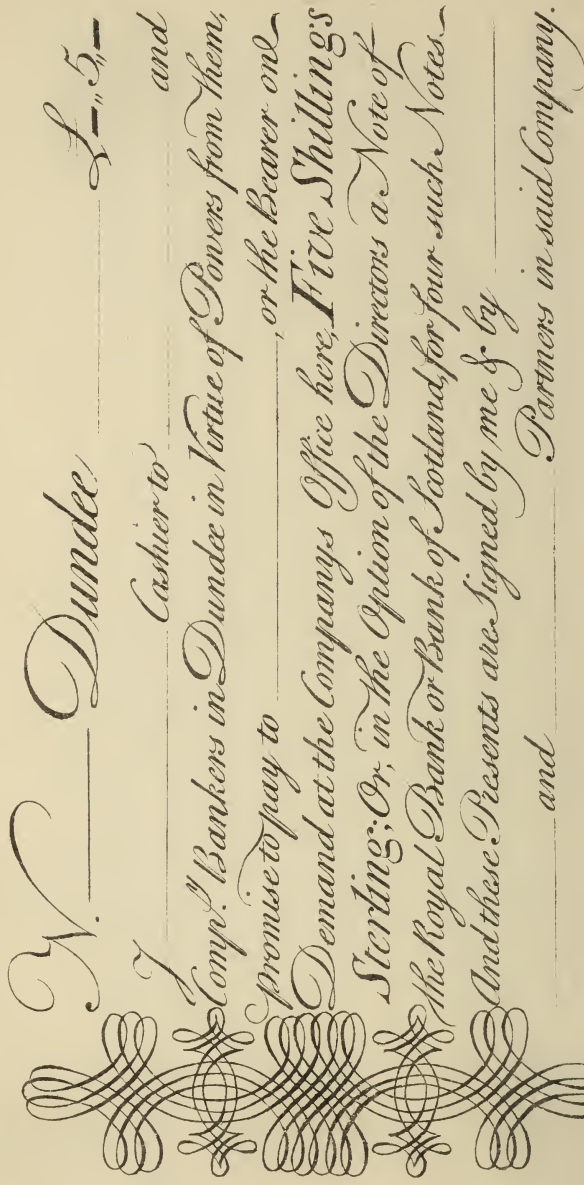 N. Dundee £ — „ 5 „ —
I Cashier to and
Compy. Bankers in Dundee in Virtue of Powers from them,
promise to pay to , or the Bearer on
Demand at the Companys Office here, Five Shillings
Sterling; Or, in the Option of the Directors a Note of
the Royal Bank or Bank of Scotland, for four such Notes
And these Presents are Signed by me & by
and Partners in said Company.